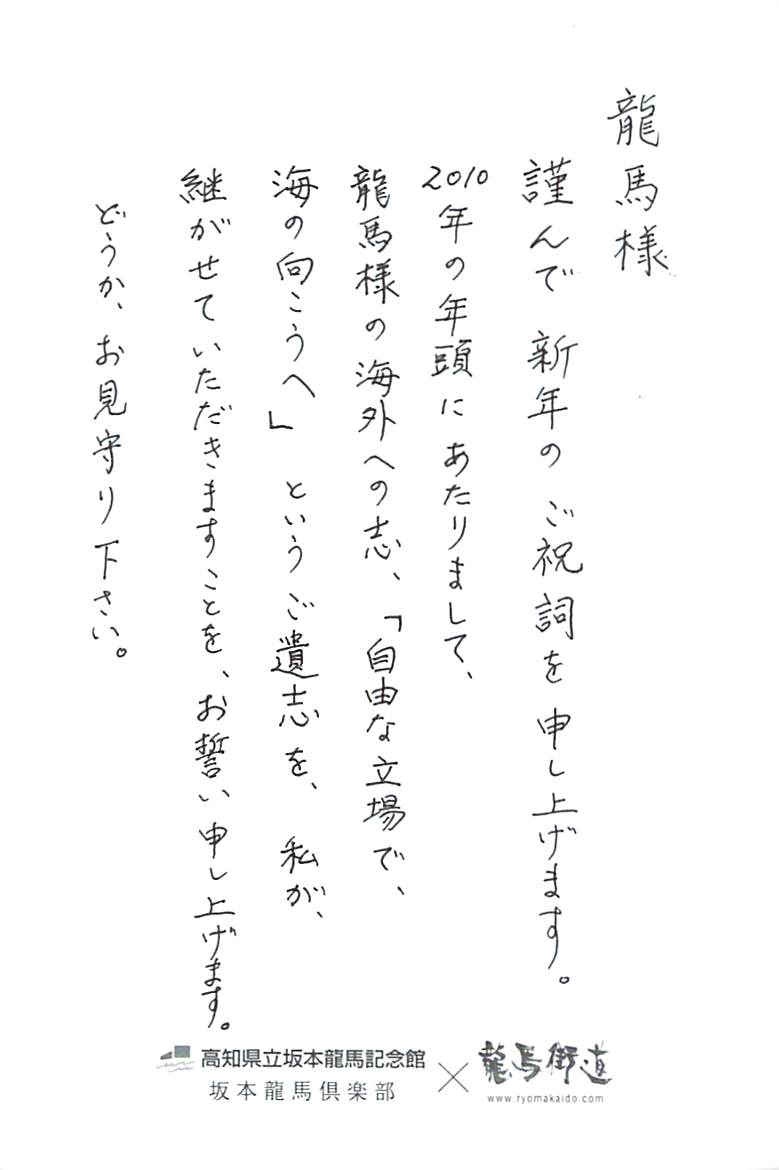 龍馬様
謹んで新年のご祝詞を申し上げます。
2010年の年頭にあたりまして、
龍馬様の海外への志、「自由な立場で、
海の向こうへ」というご遺志を、私が、
継がせていただきますことを、お誓い申し上げます。
どうか、お見守り下さい。
高知県立坂本龍馬記念館
坂本龍馬倶楽部
×
龍馬街道
www.ryomakaido.com